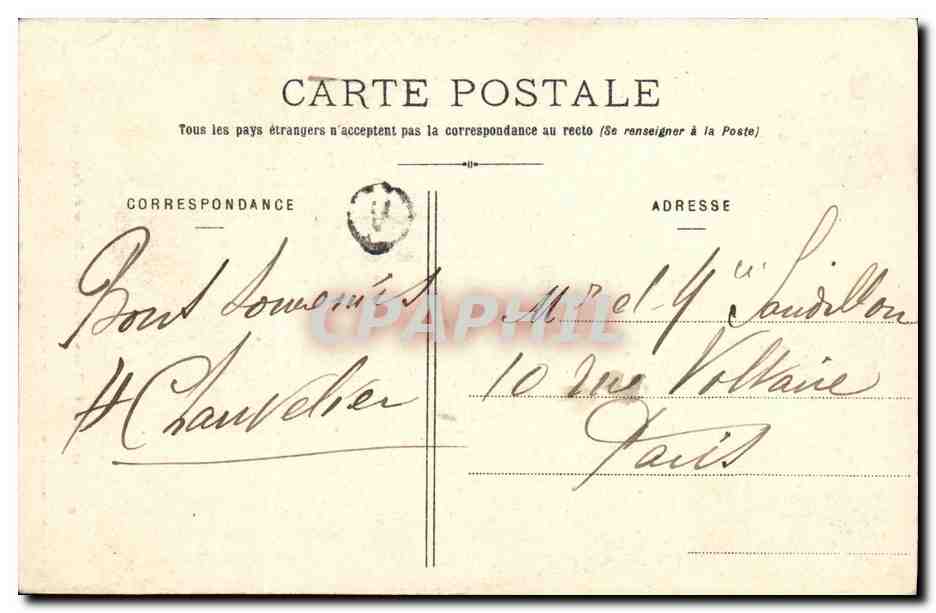 CARTE POSTALE
Tous les pays étrangers n'acceptent pas la correspondance au recto (Se renseigner à la Poste)
CORRESPONDANCE
Bons souvenirs
H Chauvelier
ADRESSE
Mr et
10 rue Voltaire
Paris
CPAPHIL